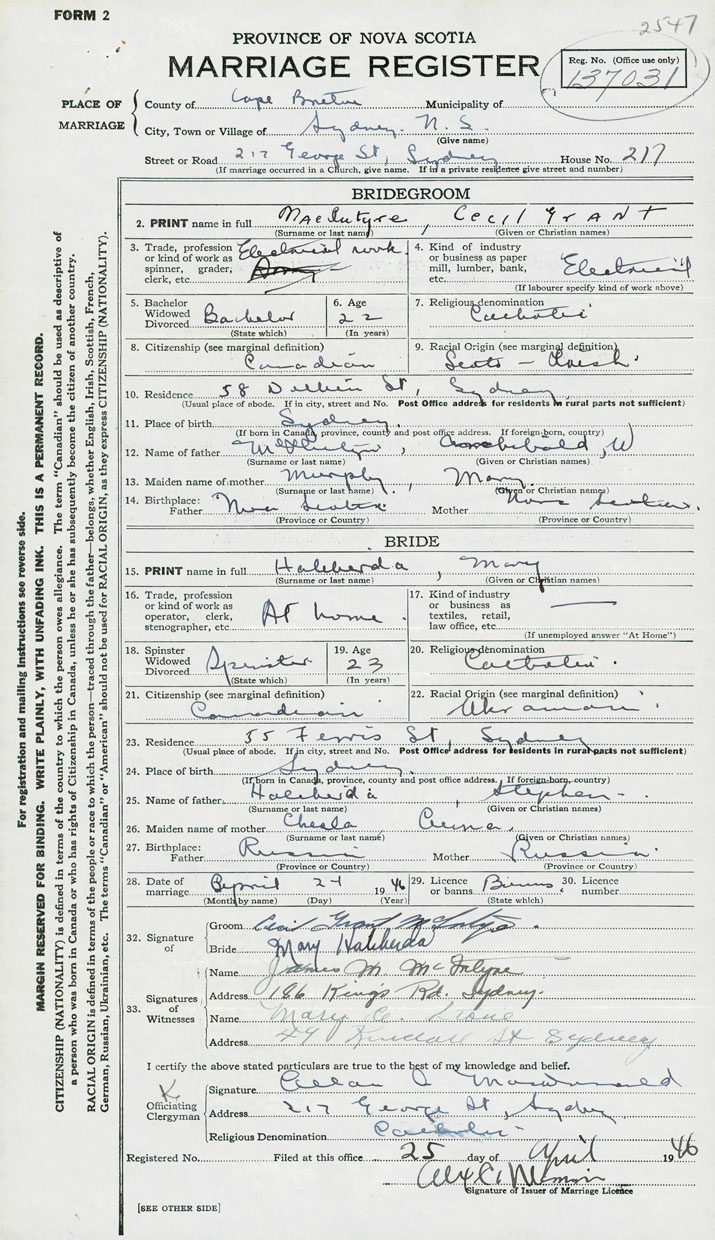 FORM 2
2547
PROVINCE OF NOVA SCOTIA
MARRIAGE REGISTER
Reg. No. (Office use only)
137031
PLACE OF MARRIAGE
County of Cape Breton Municipality of
City, Town or Village of Sydney. N. S.
(Give name)
Street or Road 217 George St, Sydney House No. 217
(If marriage occurred in a Church, give name. If in a private residence give street and number)
BRIDEGROOM
2. PRINT name in full MacIntyre, Cecil Grant
(Surname or last name) (Given or Christian names)
3. Trade, profession or kind of work as spinner, grader, clerk, etc. Electrical work.
4. Kind of industry or business as paper mill, lumber, bank, etc. Electrical
(If labourer specify kind of work above)
5. Bachelor Widowed Divorced Bachelor
(State which)
6. Age 22
(In years)
7. Religious denomination Catholic
8. Citizenship (see marginal definition) Canadian
9. Racial Origin (see marginal definition) Scots - Irish.
10. Residence 58 St, Sydney
(Usual place of abode. If in city, street and No. Post Office address for residents in rural parts not sufficient)
11. Place of birth Sydney.
(If born in Canada, province, county and post office address. If foreign-born, country)
12. Name of father McIntyre, Archibald, W
(Surname or last name) (Given or Christian names)
13. Maiden name of mother Murphy, Mary.
(Surname or last name) (Given or Christian names)
14. Birthplace: Father Nova Scotia Mother Nova Scotia.
(Province or Country) (Province or Country)
BRIDE
15. PRINT name in full Haliberda, Mary
(Surname or last name) (Given or Christian names)
16. Trade, profession or kind of work as operator, clerk, stenographer, etc. At home.
17. Kind of industry or business as textiles, retail, law office, etc. —
(If unemployed answer "At Home")
18. Spinster Widowed Divorced Spinster
(State which)
19. Age 23
(In years)
20. Religious denomination Catholic.
21. Citizenship (see marginal definition) Canadian
22. Racial Origin (see marginal definition)
23. Residence 55 Ferris St, Sydney
(Usual place of abode. If in city, street and No. Post Office address for residents in rural parts not sufficient)
24. Place of birth Sydney.
(If born in Canada, province, county and post office address. If foreign-born, country)
25. Name of father Haliberda, Stephen -
(Surname or last name) (Given or Christian names)
26. Maiden name of mother
(Surname or last name) (Given or Christian names)
27. Birthplace: Father Russia Mother Russia.
(Province or Country) (Province or Country)
28. Date of marriage April 24 1946
(Month by name) (Day) (Year)
29. Licence or banns.
(State which)
30. Licence number
32. Signature of
Groom Cecil Grant McIntyre.
Bride Mary Haliberda
33. Signatures of Witnesses
Name James M. McIntyre
Address 186 King's Rd. Sydney.
Name Mary
Address 49 St Sydney
I certify the above stated particulars are true to the best of my knowledge and belief.
Officiating Clergyman
Signature Allan
Address 217 George St, Sydney
Religious Denomination Catholic
Registered No. Filed at this office 25 day of April 1946
Signature of Issuer of Marriage Licence
[SEE OTHER SIDE]
For registration and mailing Instructions see reverse side.
MARGIN RESERVED FOR BINDING. WRITE PLAINLY, WITH UNFADING INK. THIS IS A PERMANENT RECORD.
CITIZENSHIP (NATIONALITY) is defined in terms of the country to which the person owes allegiance. The term "Canadian" should be used as descriptive of
a person who was born in Canada or who has rights of Citizenship in Canada, unless he or she has subsequently become the citizen of another country.
RACIAL ORIGIN is defined in terms of the people or race to which the person—traced through the father—belongs, whether English, Irish, Scottish, French,
German, Russian, Ukrainian, etc. The terms "Canadian" or "American" should not be used for RACIAL ORIGIN, as they express CITIZENSHIP (NATIONALITY).